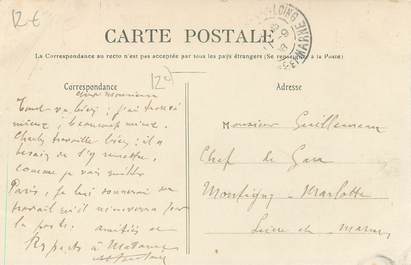 12€
CARTE POSTALE
La Correspondance au recto n'est pas acceptée par tous les pays étrangers (Se renseigner à la Poste)
LOING
MARNE
Correspondance
Adresse
12€
cher monsieur
Tout va bien; j'ai trouvé
mieux, beaucoup mieux.
Charly travaille bien; il a
besoin de s'y remettre,
comme je vais quitter
Paris, je lui donnerai du
travail qu'il m'enverra par
la poste. amitiés et
Respects à Madame
Monsieur Guillemeau
Chef de Gare
Montigny-Marlotte
Seine et Marne